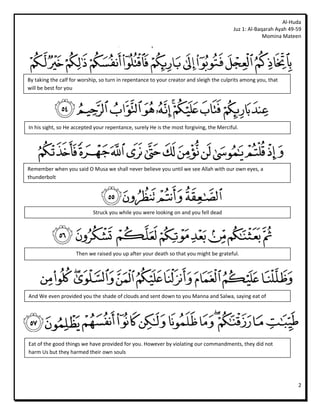 Al-Huda
Juz 1: Al-Baqarah Ayah 49-59
Momina Mateen
بِٱتِّخَاذِكُمُ ٱلْعِجْلَ فَتُوبُوٓا۟ إِلَىٰ بَارِئِكُمْ فَٱقْتُلُوٓا۟ أَنفُسَكُمْ ذَٰلِكُمْ خَيْرٌ لَّكُمْ
By taking the calf for worship, so turn in repentance to your creator and sleigh the culprits among you, that
will be best for you
عِندَ بَارِئِكُمْ فَتَابَ عَلَيْكُمْ ۚ إِنَّهُۥ هُوَ ٱلتَّوَّابُ ٱلرَّحِيمُ ٥٤
In his sight, so He accepted your repentance, surely He is the most forgiving, the Merciful.
وَإِذْ قُلْتُمْ يَٰمُوسَىٰ لَن نُّؤْمِنَ لَكَ حَتَّىٰ نَرَى ٱللَّهَ جَهْرَةً فَأَخَذَتْكُمُ
Remember when you said O Musa we shall never believe you until we see Allah with our own eyes, a
thunderbolt
ٱلصَّٰعِقَةُ وَأَنتُمْ تَنظُرُونَ ٥٥
Struck you while you were looking on and you fell dead
ثُمَّ بَعَثْنَٰكُم مِّنۢ بَعْدِ مَوْتِكُمْ لَعَلَّكُمْ تَشْكُرُونَ ٥٦
Then we raised you up after your death so that you might be grateful.
وَظَلَّلْنَا عَلَيْكُمُ ٱلْغَمَامَ وَأَنزَلْنَا عَلَيْكُمُ ٱلْمَنَّ وَٱلسَّلْوَىٰ ۖ كُلُوا۟ مِن
And We even provided you the shade of clouds and sent down to you Manna and Salwa, saying eat of
طَيِّبَٰتِ مَا رَزَقْنَٰكُمْ ۖ وَمَا ظَلَمُونَا وَلَٰكِن كَانُوٓا۟ أَنفُسَهُمْ يَظْلِمُونَ ٥٧
Eat of the good things we have provided for you. However by violating our commandments, they did not
harm Us but they harmed their own souls
2